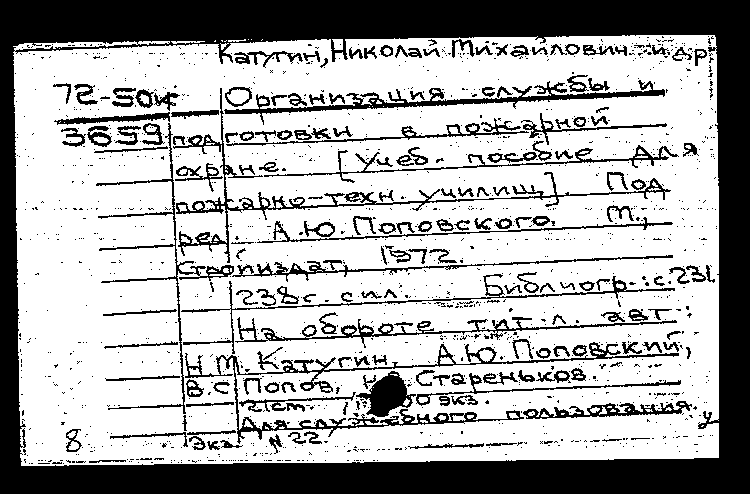 Катугин, Николай Михайлович и др
72-50к Организация службы и
3659 подготовки в пожарной
охране. [Учеб. пособие для
пожарно-техн. училищ]. Под
ред. А.Ю. Поповского. М.,
Стройиздат, 1972.
238 с. с ил. Библиогр.: с. 231.
На обороте тит. л. авт.:
Н.М. Катугин, А.Ю. Поповский,
В.С. Попов, Стареньков.
21 см. экз.
Для служебного пользования.
Экз. N 22 у
8